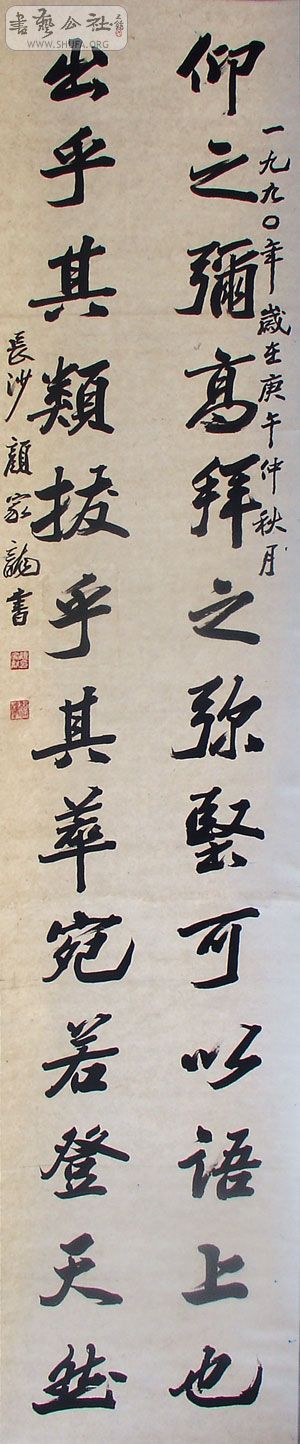 書藝公社
WWW.SHUFA.ORG
一九九〇年歲在庚午仲秋月
仰之彌高拜之弥堅可以語上也
出乎其類拔乎其萃宛若登天然
長沙顏家龍書